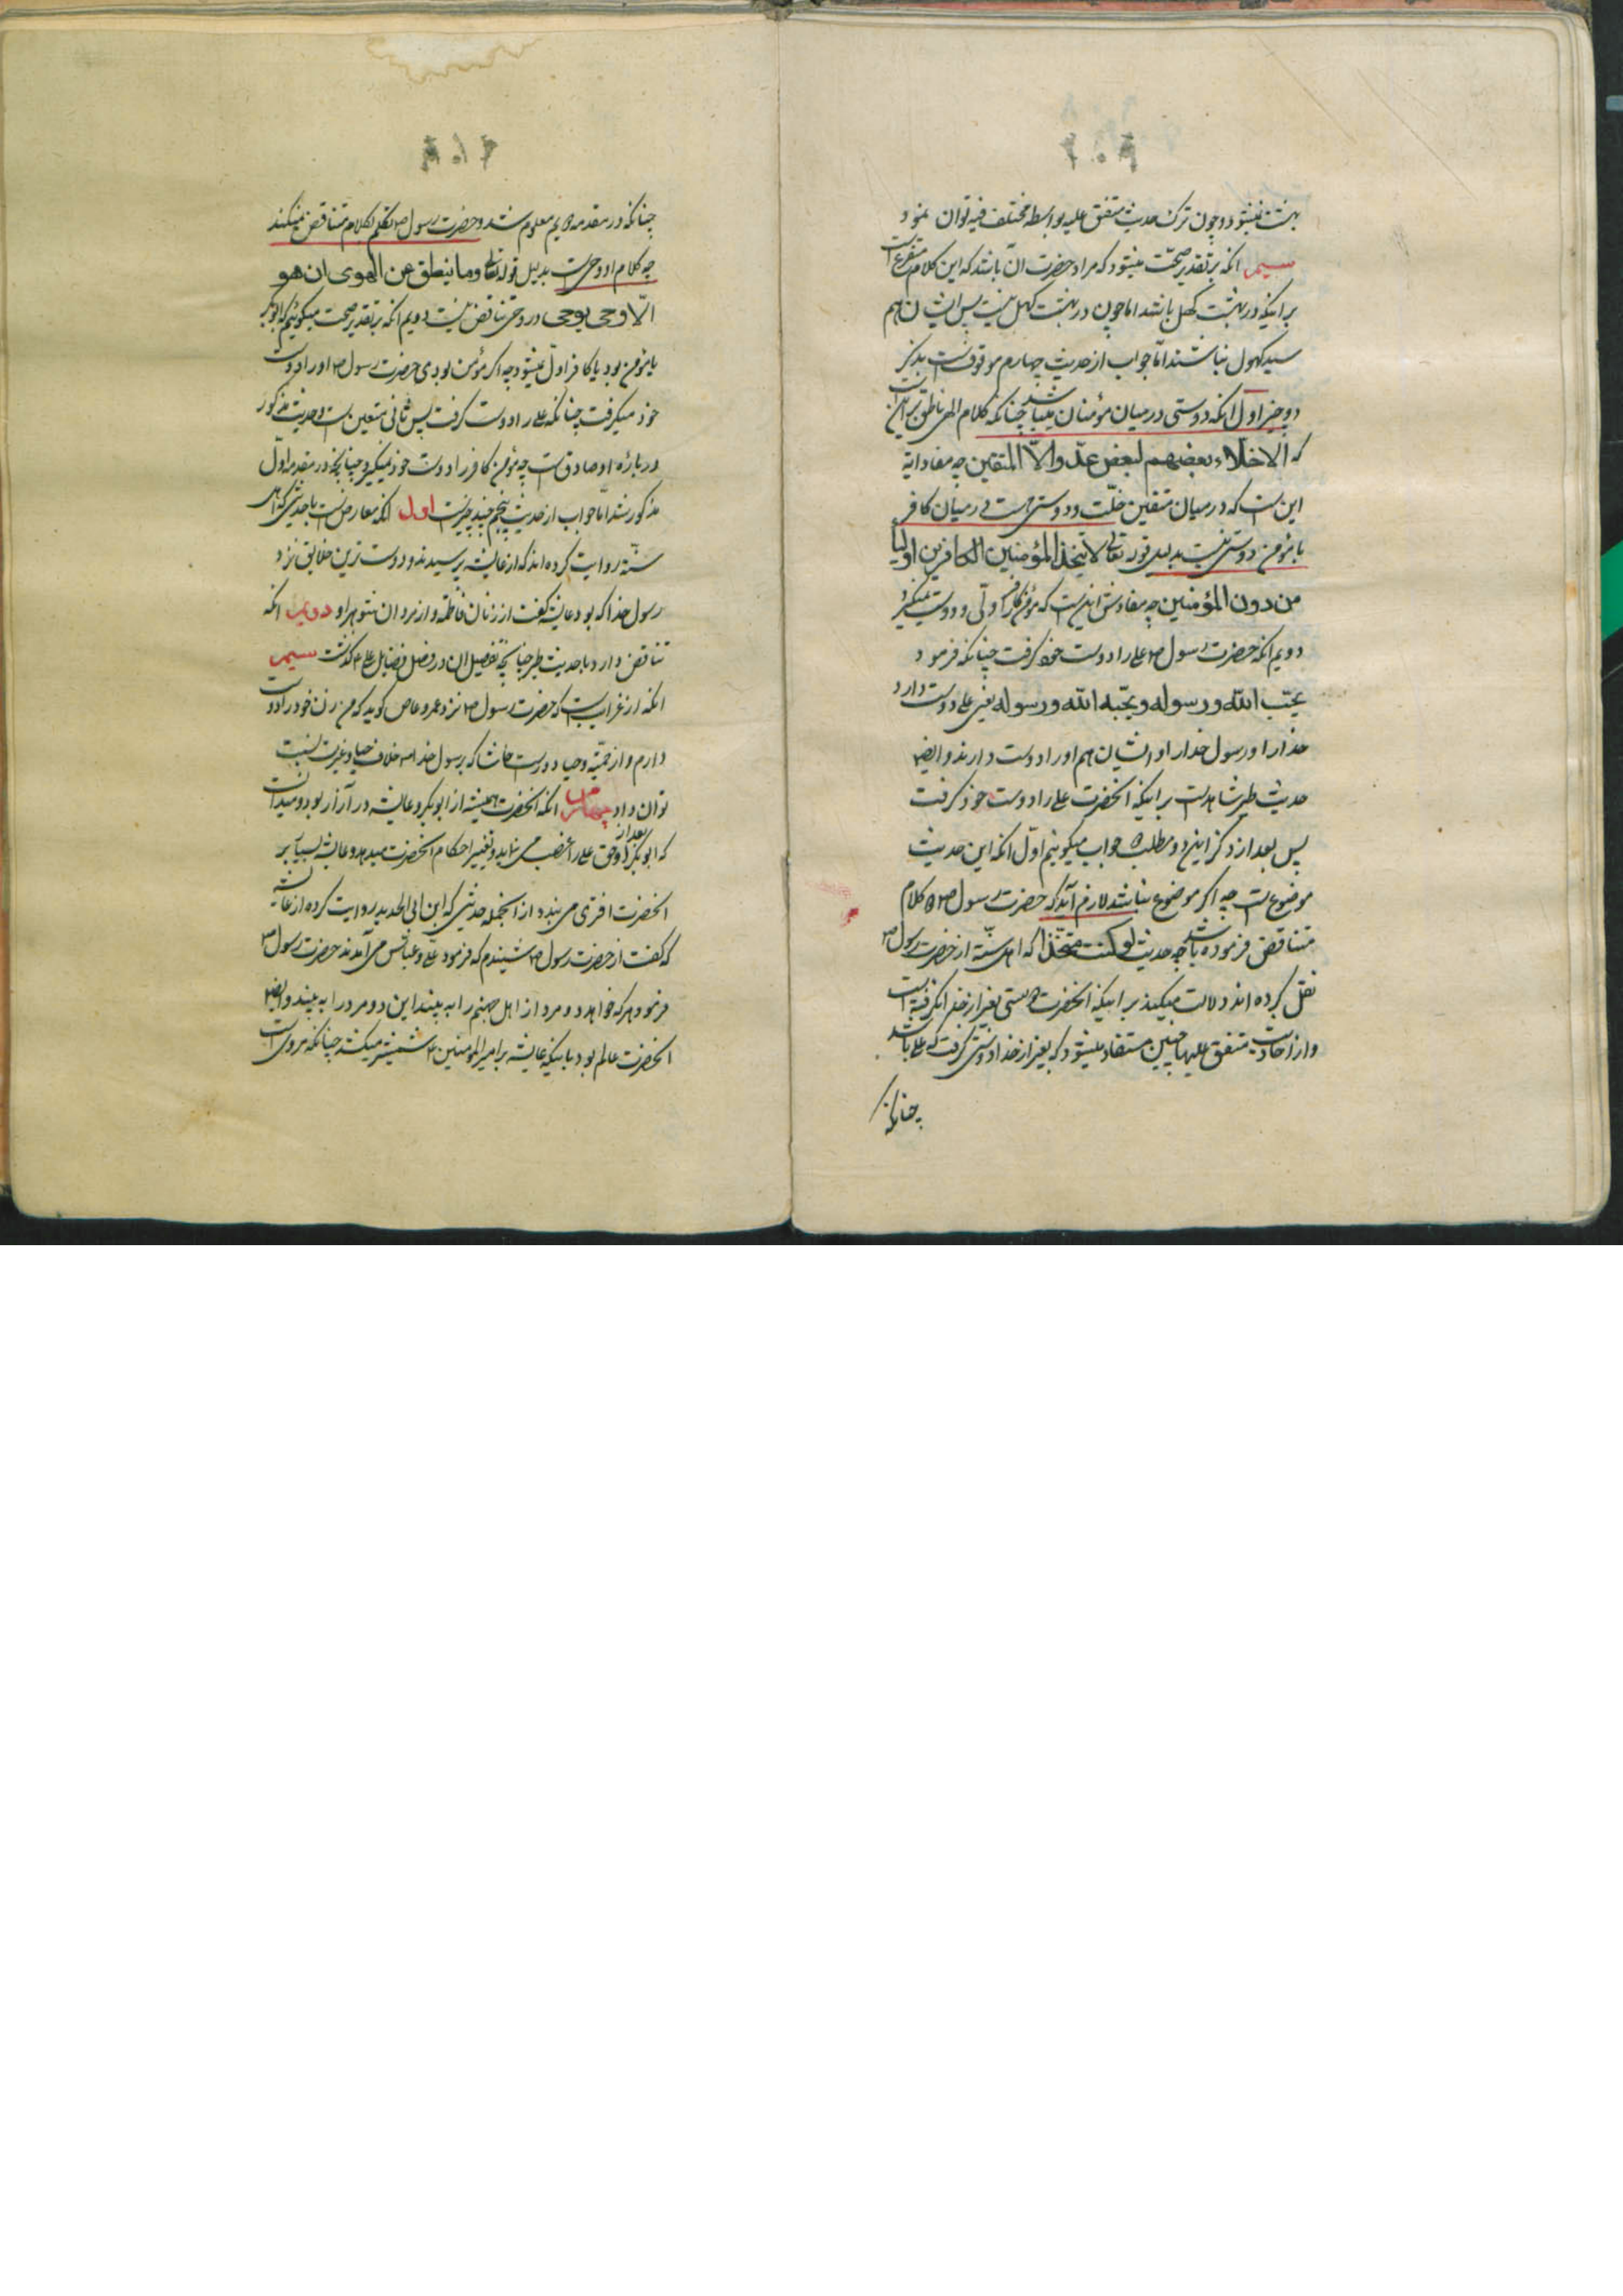 بهشت نمیشود و چون ترک حدیث متفق علیه بواسطه مختلف فیه توان نمود
سیم انکه بر تقدیر صحّت میشود که مراد حضرت آن باشد که این کلام متفرع است
بر اینکه در بهشت کهل باشد اما چون در بهشت کهل نیست پس ایشان هم
سید کهول نباشند امّا جواب از حدیث چهارم موقوفست بذکر
دو چیز اول انکه دوستی در میان مؤمنان میباشد چنانکه کلام الهی ناطق بر آنست
که الاخلّاء بعضهم لبعض عدّو الاّ المتقین چه مفاد آیه
این است که در میان متقین خلّت و دوستی هست و در میان کافر
با مؤمن دوستی نیست بدلیل قوله تعالی لا یتخذ المؤمنین الکافرین اولیا
من دون المؤمنین چه مفادش اینست که مؤمن کافر را ولی و دوست نمیگیرد
دویم انکه حضرت رسول ص علی را دوست خود گرفت چنانکه فرمود
یحبّ الله ورسوله ویحبّه الله ورسوله یعنی علی دوست دارد
خدا را و رسول خدا را و ایشان هم او را دوست دارند و ایضا
حدیث طیر شاهدست بر اینکه انحضرت علی را دوست خود گرفت
پس بعد از ذکر این دو مطلب جواب میکوییم اوّل انکه این حدیث
موضوع است چه اکر موضوع نباشد لازم آید که حضرت رسول ص کلام
متناقض فرموده باشد چه حدیث لو کنت متخذا که اهل سنّة از حضرت رسول ص
نقل کرده اند دلالت میکند بر اینکه انحضرت دوستی بغیر از خدا نکرفته است
و از احادیث متفق علیها چنین مستفاد میشود که بغیر از خدا دوستی کرفت که علی باشد
چنانکه
چنانکه در مقدمه دویم معلوم شد و حضرت رسول ص تکلم بکلام متناقض نمیکند
چه کلام او وحی است بدلیل قوله تعالی وما ینطق عن الهوی ان هو
الّا وحی یوحی در وحی تناقض نیست دویم انکه بر تقدیر صحت میکوئیم که ابوبکر
یا مؤمن بود یا کافر اول نمیشود چه اکر مؤمن بودی حضرت رسول ص او را دوست
خود میکرفت چنانکه علی را دوست کرفت پس ثانی متعین است و حدیث مذکور
درباره او صادق است چه مؤمن کافر را دوست خود نمیکیرد چنانچه در مقدمه اوّل
مذکور شد امّا جواب از حدیث پنجم چند چیزست اول انکه معارض است با حدیثی که اهل
سنّة روایت کرده اند که از عایشه پرسیدند و دوست ترین خلایق نزد
رسول خدا که بود عایشه کفت از زنان فاطمه و از مردان شوهر او دویم انکه
تناقض دارد با حدیث طیر چنانچه تفصیل ان در فصل فضایل علی ع کذشت سیم
انکه از غرایب است که حضرت رسول ص نزد عمرو عاص کوید که من زن خود را دوست
دارم و از حمیّة و حیا دورست حاشا که برسول خدا ص خلاف حیا و غیرت نسبت
توان داد چهارم انکه انحضرت همیشه از ابوبکر و عایشه در آزار بود و میدانست
که ابوبکر بعد از او حق علی را غصب می نماید و تغییر احکام انحضرت میدهد و عایشه بسیار بر
انحضرت افتری می بندد از انجمله حدیثی که ابن ابی الحدید روایت کرده از عایشه
که کفت از حضرت رسول ص شنیدم که فرمود علی و عباس می آمدند حضرت رسول ص
فرمود هرکه خواهد دو مرد از اهل جهنم را به بیند این دو مرد را به بیند و ایضا
انحضرت عالم بود باینکه عایشه بر امیرالمؤمنین ع شمشیر میکشد چنانکه مرویست